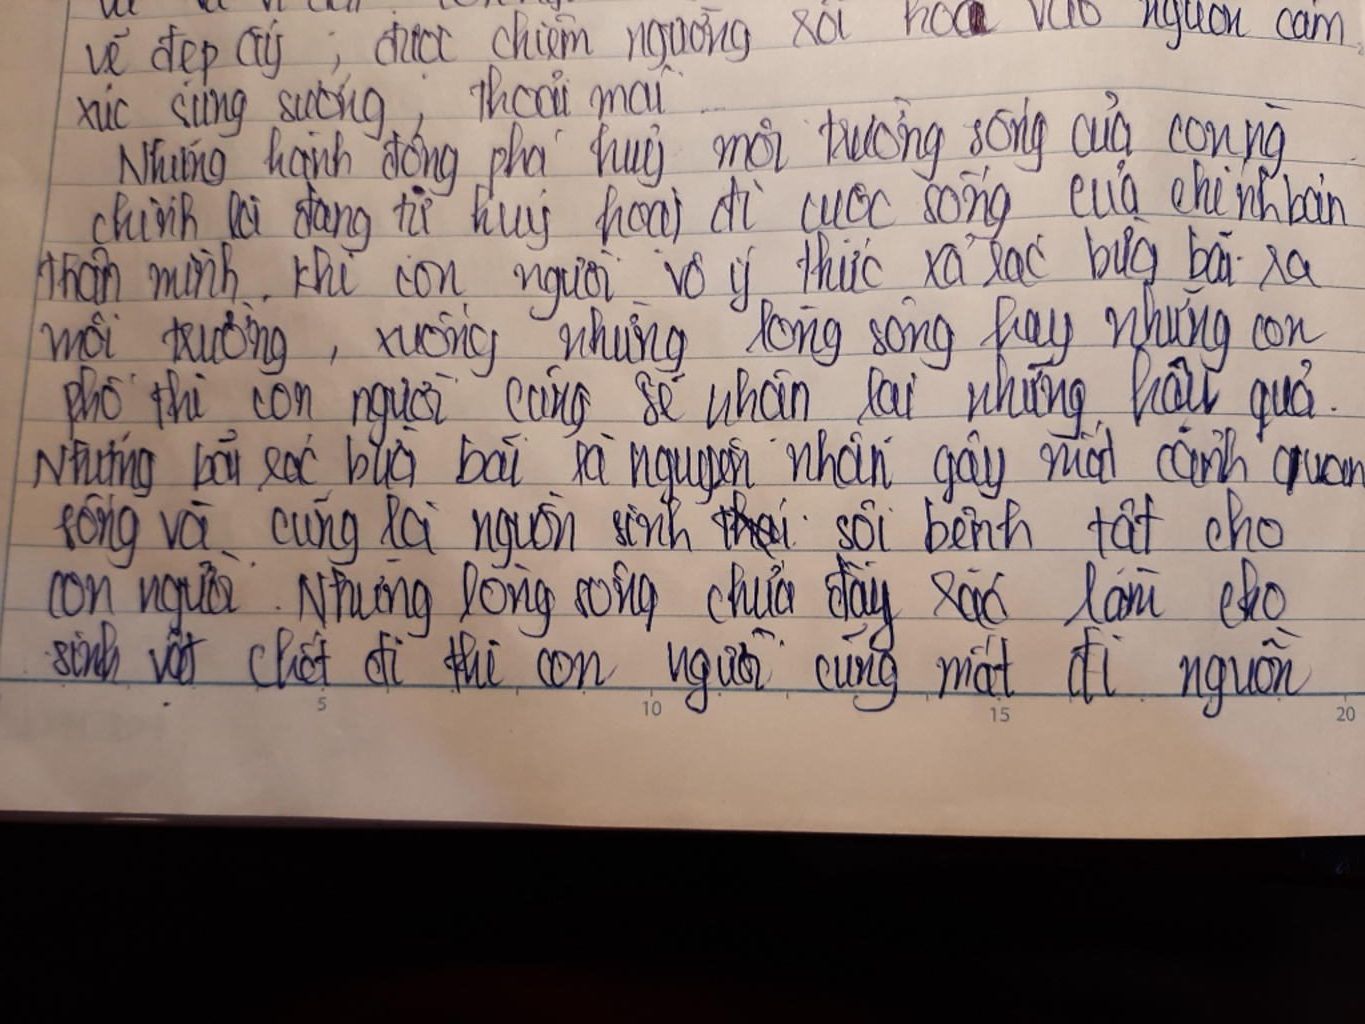 vẻ đẹp ấy, được chiêm ngưỡng rồi hoà vào nguồn cảm
xúc sung sướng, thoải mái
Những hành động phá huỷ môi trường sống của con ng
chính là đang tự huỷ hoại đi cuộc sống của chính bản
thân mình. Khi con người vô ý thức xả rác bừa bãi ra
môi trường, xuống những lòng sông hay những con
phố thì con người cũng sẽ nhận lại những hậu quả.
Những bãi rác bừa bãi là nguyên nhân gây mất cảnh quan
sống và cũng là nguồn sinh sôi bệnh tật cho
con người. Những lòng sông chứa đầy rác làm cho
sinh vật chết đi thì con người cũng mất đi nguồn
5 10 15 20